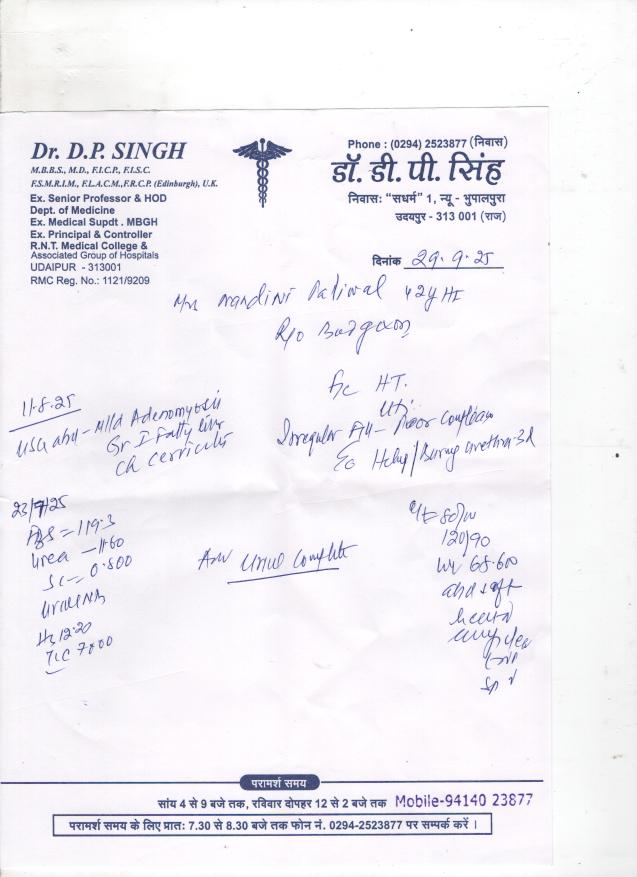 Dr. D.P. SINGH
M.B.B.S., M.D., F.I.C.P., F.I.S.C.
F.S.M.R.I.M., F.L.A.C.M.,F.R.C.P. (Edinburgh), U.K.
Ex. Senior Professor & HOD
Dept. of Medicine
Ex. Medical Supdt . MBGH
Ex. Principal & Controller
R.N.T. Medical College &
Associated Group of Hospitals
UDAIPUR - 313001
RMC Reg. No.: 1121/9209
Phone : (0294) 2523877 (निवास)
डॉ. डी. पी. सिंह
निवास: "सधर्म" 1, न्यू - भुपालपुरा
उदयपुर - 313 001 (राज)
दिनांक 29.9.25
Nandini Paliwal 42y
R/o
HT.
UTI
Irregular
Burning urethra 3d
11.8.25
USG abd - Mild Adenomyosis
Gr I Fatty liver
23/9/25
FBS = 119.3
Urea - 11.60
SC - 0.800
Hb 12.20
TLC 7000
Adv Urine Complete
80/m
120/90
Wt 68.600
abd soft
परामर्श समय
सांय 4 से 9 बजे तक, रविवार दोपहर 12 से 2 बजे तक Mobile-94140 23877
परामर्श समय के लिए प्रातः 7.30 से 8.30 बजे तक फोन नं. 0294-2523877 पर सम्पर्क करें ।